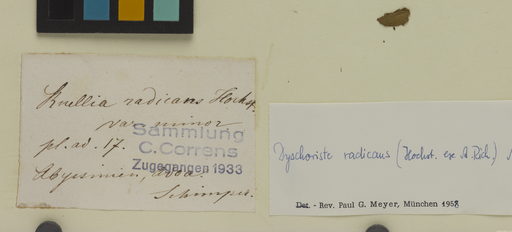 Ruellia radicans Hochst.
var minor
pl. ad. 17.
Abyssinien, Adoa.
Schimper.
Sammlung
C. Correns
Zugegangen 1933
Dyschoriste radicans (Hochst. ex A. Rich.)
Det. - Rev. Paul G. Meyer, München 1958